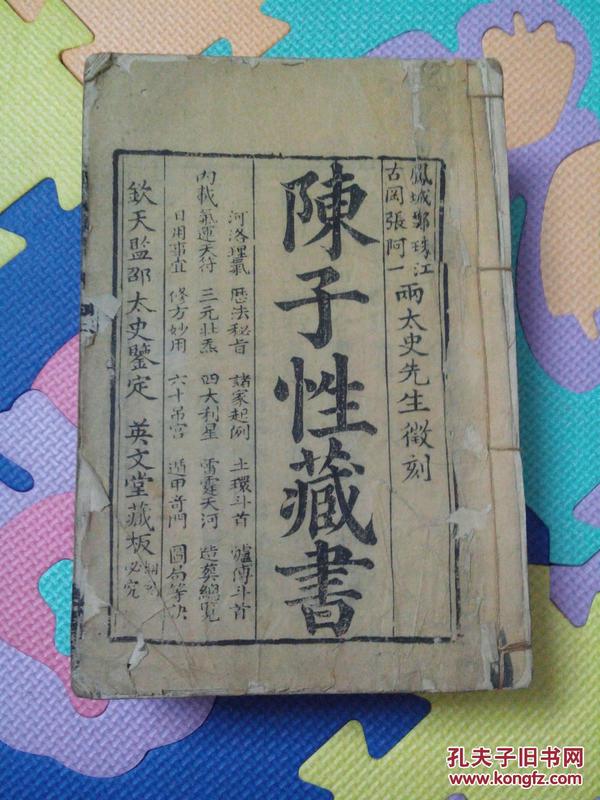 鳳城鄭珠江
古岡張阿一
兩太史先生徵刻
陳子性藏書
河洛理氣 歷法秘旨 諸家起例 土環斗首 爐傳斗首
內載
氣運天符 三元壯炁 四大利星 雷霆天河 造葬總覽
日用事宜 修方妙用 六十吊宮 遁甲奇門 圖局等訣
欽天監邵太史鑒定 英文堂藏板
必究
孔夫子旧书网
www.kongfz.com